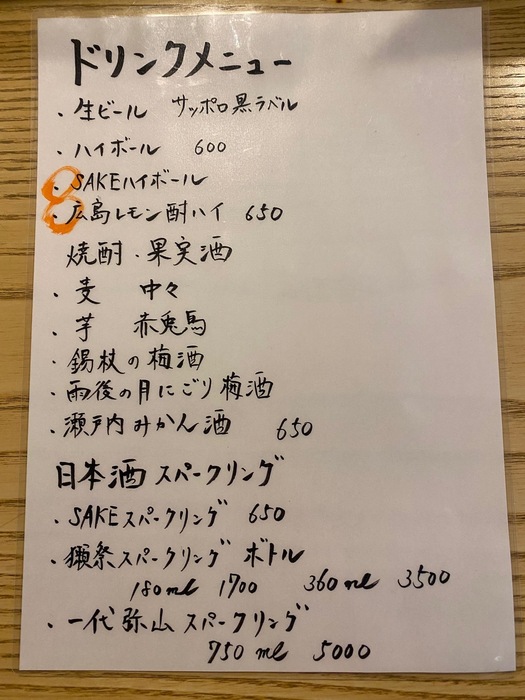 ドリンクメニュー
・生ビール サッポロ黒ラベル
・ハイボール 600
・SAKEハイボール
・広島レモン酎ハイ 650
焼酎・果実酒
・麦 中々
・芋 赤兎馬
・錫杖の梅酒
・雨後の月にごり梅酒
・瀬戸内みかん酒 650
日本酒スパークリング
・SAKEスパークリング 650
・獺祭スパークリング ボトル
180ml 1700 360ml 3500
・一代弥山 スパークリング
750 ml 5000